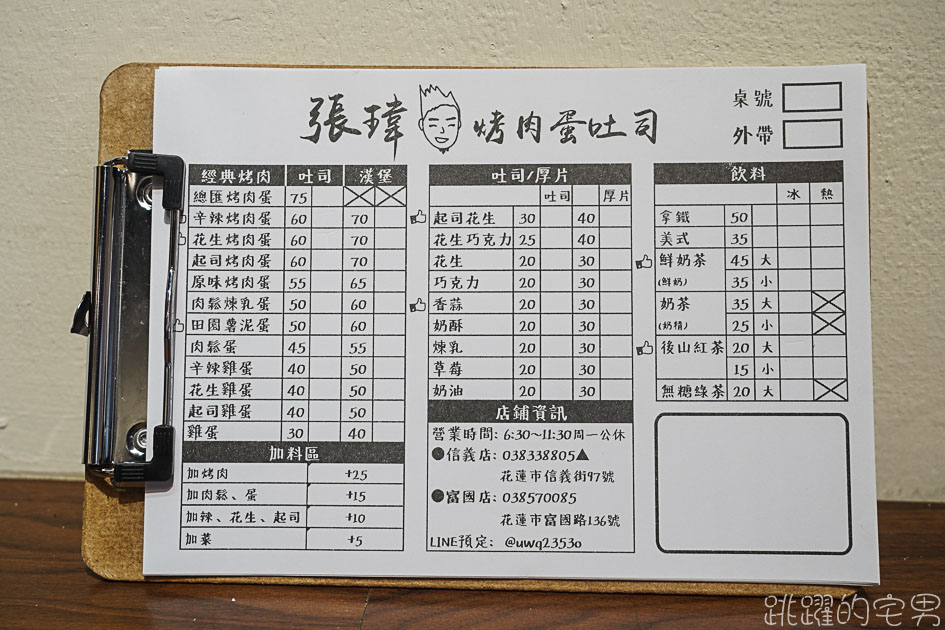 張瑋 烤肉蛋吐司
桌號
外帶
經典烤肉 吐司 漢堡
總匯烤肉蛋 75
辛辣烤肉蛋 60 70
花生烤肉蛋 60 70
起司烤肉蛋 60 70
原味烤肉蛋 55 65
肉鬆煉乳蛋 50 60
田園薯泥蛋 50 60
肉鬆蛋 45 55
辛辣雞蛋 40 50
花生雞蛋 40 50
起司雞蛋 40 50
雞蛋 30 40
加料區
加烤肉 +25
加肉鬆、蛋 +15
加辣、花生、起司 +10
加菜 +5
吐司/厚片
吐司 厚片
起司花生 30 40
花生巧克力 25 40
花生 20 30
巧克力 20 30
香蒜 20 30
奶酥 20 30
煉乳 20 30
草莓 20 30
奶油 20 30
店鋪資訊
營業時間: 6:30~11:30周一公休
●信義店: 038338805▲
花蓮市信義街97號
●富國店: 038570085
花蓮市富國路136號
LINE預定: @uwq2353o
飲料
冰 熱
拿鐵 50
美式 35
鮮奶茶 45 大
(鮮奶) 35 小
奶茶 35 大
(奶精) 25 小
後山紅茶 20 大
15 小
無糖綠茶 20 大
跳躍的宅男